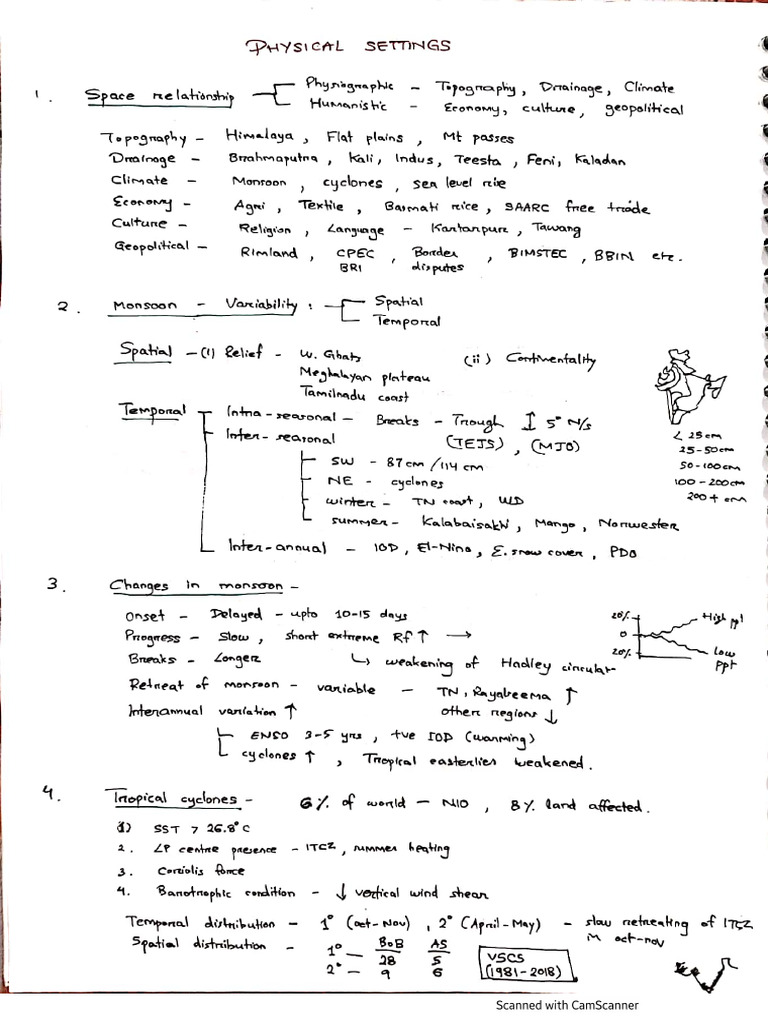 PHYSICAL SETTINGS
1. Space relationship Physiographic - Topography, Drainage, Climate
Humanistic - Economy, culture, geopolitical
Topography - Himalaya, Flat plains, Mt passes
Drainage - Brahmaputra, Kali, Indus, Teesta, Feni, Kaladan
Climate - Monsoon, cyclones, sea level rise
Economy - Agri, Textile, Basmati rice, SAARC free trade
Culture - Religion, Language - Kartarpura, Tawang
Geopolitical - Rimland, CPEC, Border, BIMSTEC, BBIN etc.
BRI disputes
2. Monsoon - Variability: Spatial
Temporal
Spatial - (i) Relief - W. Ghats (ii) Continentality
Meghalayan plateau
Tamilnadu coast
Temporal Intra-seasonal - Breaks - Trough 5° N/S
Inter-seasonal (TEJS), (MJO)
< 25 cm
25-50cm
50-100cm
100-200cm
200+ cm
SW - 87cm/114 cm
NE - cyclones
winter - TN coast, WD
summer - Kalabaisakhi, Mango, Norwester
Inter-annual - IOD, El-Nino, E. snow cover, PDO
3. Changes in monsoon -
Onset - Delayed - upto 10-15 days
Progress - Slow, short extreme Rf ↑ →
Breaks - Longer ↳ weakening of Hadley circular
Retreat of monsoon - variable - TN, Rayalseema ↑
Interannual variation ↑ other regions ↓
20%
0
20%
High ppt
Low ppt
ENSO 3-5 yrs, +ve IOD (warming)
cyclones ↑, Tropical easterlies weakened.
4. Tropical cyclones - 6% of world - NIO, 8% land affected.
1) SST > 26.8°C
2. LP centre presence - ITCZ, summer heating
3. Coriolis force
4. Barotrophic condition - ↓ vertical wind shear
Temporal distribution - 1° (Oct-Nov), 2° (April-May) - slow retreating of ITCZ
Spatial distribution - BOB AS M oct-nov
1° - 28 5
2° - 9 6
VSCS
(1981-2018)
Scanned with CamScanner